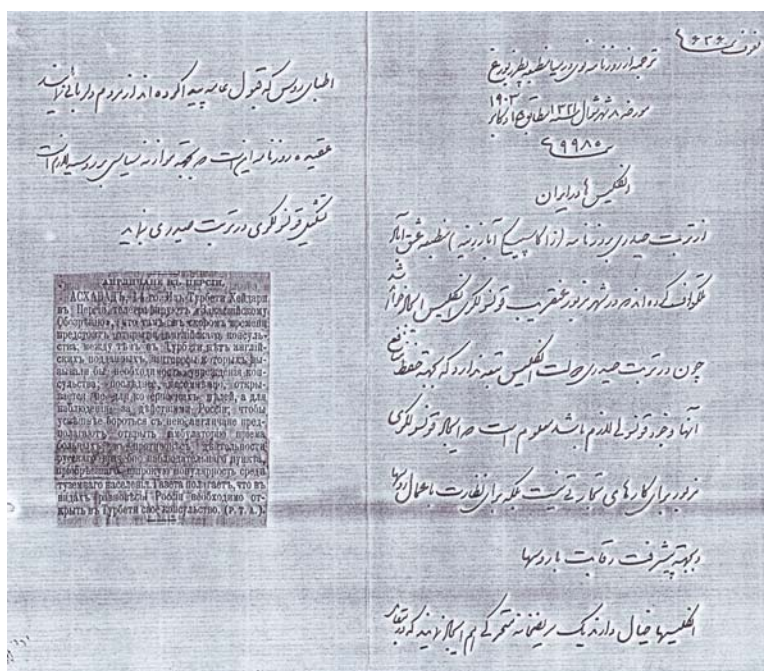 ۶۲۶
ترجمه از روزنامه نوی ورمیا منطبعه پطرزبورغ
مورخه ۸ شهر شوال ۱۳۲۱ مطابق ۱۵ دکابر ۱۹۰۳
۹۹۸۰
انگلیس ها در ایران
از تربت حیدری بروزنامه (زاکاسپیسکی آبازرنیه) منطبعه عشق آباد
تلگراف کرده اند که در شهر مزبور عنقریب قونسولگری انگلیس ایجاد خواهد شد
چون در تربت حیدری دولت انگلیس تبعه ندارد که بجهة حفظ منافع
آنها وجود قونسولی لازم باشد معلوم است که ایجاد قونسولگری
مزبور برای کارهای تجارتی نیست بلکه برای نظارت باعمال روسها
و بجهة پیشرفت رقابت با روسها
انگلیسها خیال دارند یک مریضخانه متحرکی هم ایجاد نمایند که در مقابل
اطبای روس که قبول عامه پیدا کرده اند از مردم دلربائی نمایند
عقیده روزنامه اینست که بجهة موازنه سیاسی بر روسیه لازم است
تشکیل قونسولگری در تربت حیدری نماید
АНГЛИЧАНЕ ВЪ ПЕРСІИ.
АСХАБАДЪ, 14-го. Изъ Турбети Хейдари
въ Персіи телеграфируютъ «Закаспійскому
Обозрѣнію», что тамъ въ скоромъ времени
предстоитъ открытіе англійскаго консуль-
ства, между тѣмъ въ Турбети нѣтъ англій-
скихъ подданныхъ, интересы которыхъ вы-
зывали бы необходимость учрежденія кон-
сульства; послѣднее, несомнѣнно, откры-
вается не для коммерческихъ цѣлей, а для
наблюденія за дѣйствіями Россіи; чтобы
успѣшнѣе бороться съ нею, англичане пред-
полагаютъ открыть амбулаторію пріема
больныхъ въ противовѣсъ дѣятельности
русскаго врачебно-наблюдательнаго пункта,
пріобрѣвшаго широкую популярность среди
туземнаго населенія. Газета полагаетъ, что въ
видахъ равновѣсія Россіи необходимо от-
крыть въ Турбети свое консульство. (Р. Т. А.).